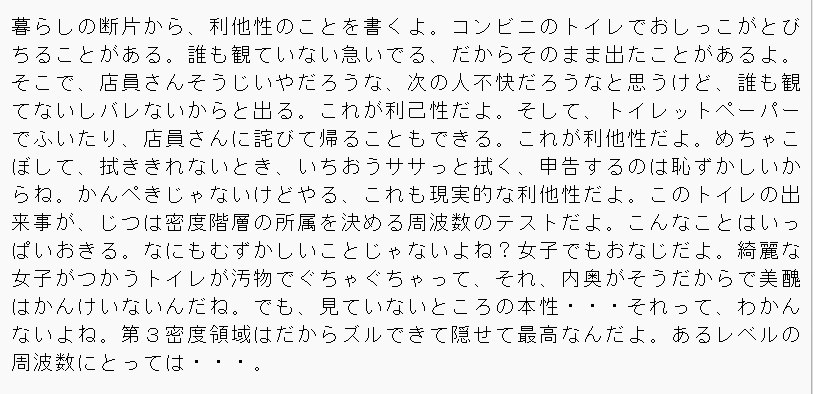 暮らしの断片から、利他性のことを書くよ。コンビニのトイレでおしっこがとび
ちることがある。誰も観ていない急いでる、だからそのまま出たことがあるよ。
そこで、店員さんそうじいやだろうな、次の人不快だろうなと思うけど、誰も観
てないしバレないからと出る。これが利己性だよ。そして、トイレットペーパー
でふいたり、店員さんに詫びて帰ることもできる。これが利他性だよ。めちゃこ
ぼして、拭ききれないとき、いちおうササっと拭く、申告するのは恥ずかしいか
らね。かんぺきじゃないけどやる、これも現実的な利他性だよ。このトイレの出
来事が、じつは密度階層の所属を決める周波数のテストだよ。こんなことはいっ
ぱいおきる。なにもむずかしいことじゃないよね？女子でもおなじだよ。綺麗な
女子がつかうトイレが汚物でぐちゃぐちゃって、それ、内奥がそうだからで美醜
はかんけいないんだね。でも、見ていないところの本性・・・それって、わかん
ないよね。第３密度領域はだからズルできて隠せて最高なんだよ。あるレベルの
周波数にとっては・・・。